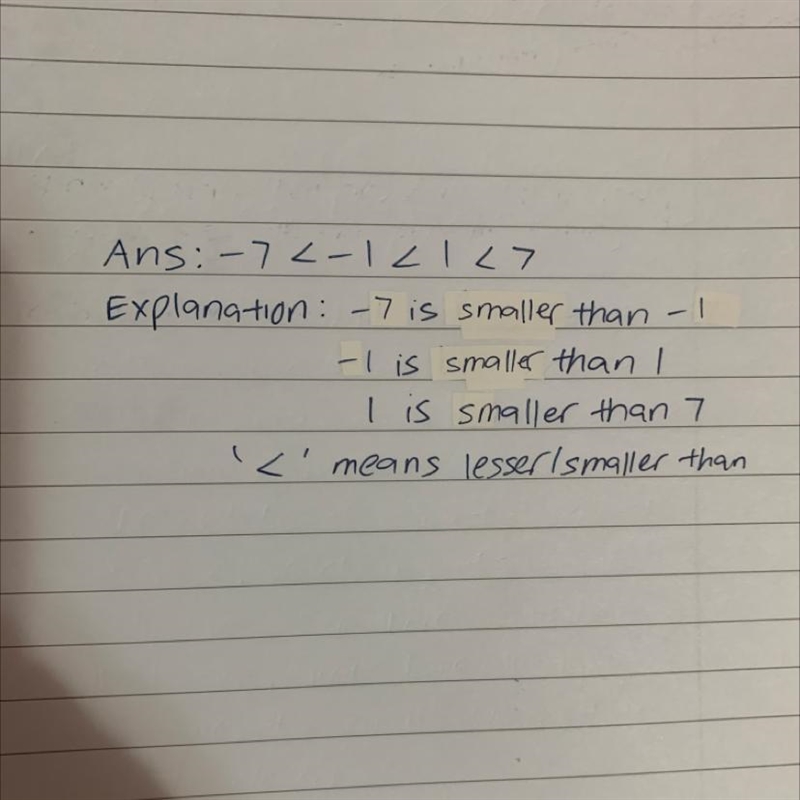 Ans: -7 < -1 < 1 < 7
Explanation: -7 is smaller than -1
-1 is smaller than 1
1 is smaller than 7
'<' means lesser/smaller than